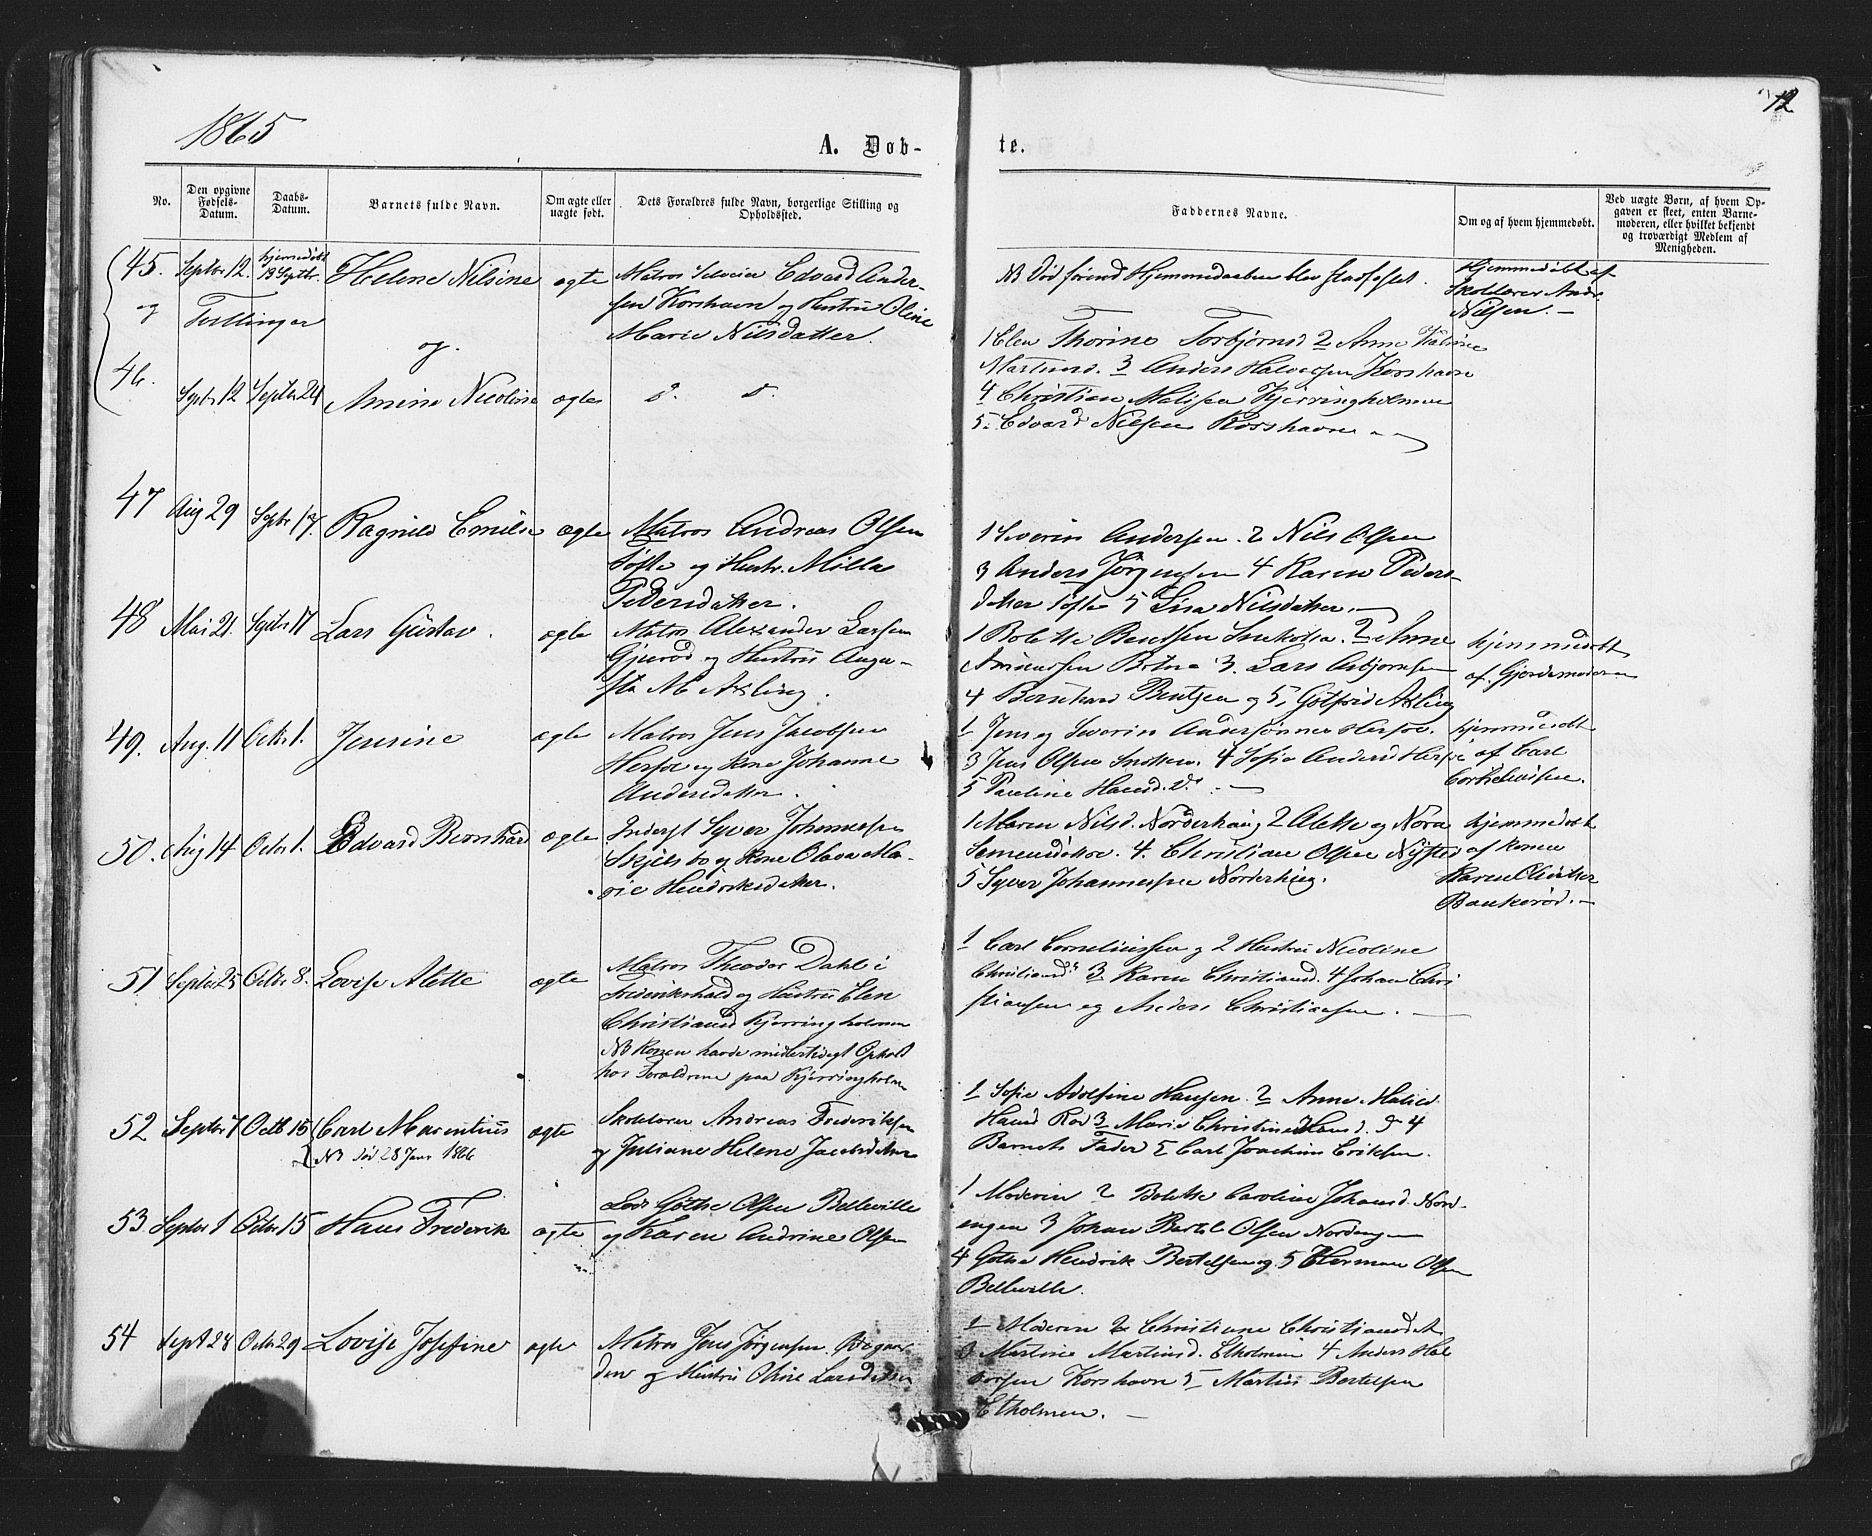 1865
12
A. Døb-
te.
No.
Den opgivne
Fødsels-
Datum.
Daabs-
Datum.
Barnets fulde Navn.
Om ægte eller
uægte født.
Dets Forældres fulde Navn, borgerlige Stilling og
Opholdssted.
Faddernes Navne.
Om og af hvem hjemmedøbt.
Ved uægte Børn, af hvem Op-
gaven er skeet, enten Barne-
moderen, eller hvilket bekjendt
og troværdigt Medlem af
Menigheden.
45. Septbr 12. hjemmedøbt
13 Septbr. Helene Nilsine ægte Matros Edvard Ander-
sen Korshavn og Hustru Oline
Marie Nilsdatter.
og Tvillinger
og
NB Hjemmedaaben blev stadfæstet.
Hjemmedøbt af
Skolelærer Andr
Nilsen. —
46. Septbr 12 Septbr 24 Amine Nicoline ægte d. d.
1 Elen Thorine Torbjørnsd 2 Anne
Martinsd. 3 Anders Halvorsen Korshavn
4 Christian Kjerringholmen
5. Edvard Nilsen Korshavn
47 Aug 29 Septbr 17. Ragnild Emilie ægte Matros Andreas Olsen
Tofte og Hustr. Milla
Pedersdatter.
1 Severin Andersen. 2 Nils Olsen
3 Anders Jørgensen 4 Karen Peders-
datter Tofte 5 Lisa Nilsdatter. —
48 Mai 21. Septbr 17 Lars Gustav. ægte Matros Alexander Larsen
Gjerød og Hustru Augu-
sta M Axling.
1 Bolette 2 Anne
3. Lars Asbjørnsen
4 Bernhard Bentzen og 5, Gotfred Axling
hjemmedøbt
af Gjordemoderen
49. Aug. 11 Octbr 1. Jensine ægte Matros Jens Jacobsen
Herføl og Kone Johanne
Andersdatter.
1 Jens og Severin Andersønner Herføl.
3 Jens Olsen 4 Sofie Andersd
5 Pauline Hansd.
hjemmedøbt
af Carl
Corneliusen.
50. Aug 14 Octbr 1. Edvard Bernhard ægte Inderst Syver Johannesen
Skjelsbo og Kone Olava Ma-
rie Hendriksdatter.
1 Maren Nilsd. Norderhaug 2 Alette og Nora
4. Christian Olsen
5 Syver Johannesen Norderhaug.
hjemmedøbt
af konen
Karen
51 Septbr 25 Octbr 8. Lovise Alette ægte Matros Theodor Dahl i
Frederikshald og Hustru Elen
Christiansd Kjerringholmen
NB Konen havde midlertidigt Ophold
hos Forældrene paa Kjerringholmen
1 Carl Corneliussen og 2 Hustru Nicoline
Christiansd. 3 Karen Christiansd. 4 Johan Chri
stiansen og Anders Christiansen. —
52 Septbr 7 Octb 15 Carl Marentius ægte Skolelærer Andreas Frederiksen
NB død 28 Janr 1866
og Juliane Helene
1 Sofie Adolfine Hansen. 2 Anne
Hansd Rød 3 Marie Christine Hansd. d 4
Barnets Fader 5 Carl Joachim Eriksen.
53 Septbr 1 Octbr 15 Hans Frederik ægte Lods Gøthe Olsen Belleville
og Karen Andrine Olsen
1 Moderen 2 Bolette Caroline Johansd. Nord-
engen 3 Johan Bertel Olsen Nordengen
4 Gøthe Hendrik Bertelsen og 5 Herman Olsen
Belleville.
54 Sept 28 Octbr 29 Lovise Josefine ægte Matros Jens Jørgensen
og Hustru Oline Larsdatter
1 Moderen 2 Christiane Christiansdat
3 Martine Martinsd. Etholmen 4 Anders Hal
vorsen Korshavn 5 Martin Bertelsen
Etholmen. —